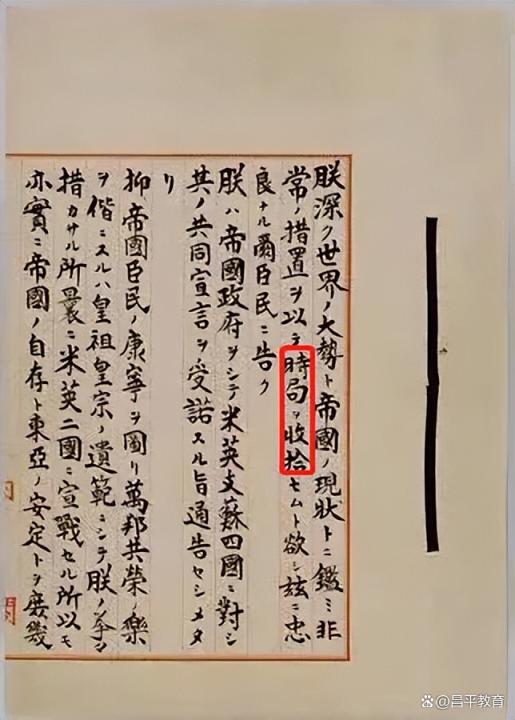 朕深ク世界ノ大勢ト帝國ノ現狀トニ鑑ミ非
常ノ措置ヲ以テ時局ヲ收拾セムト欲シ玆ニ忠
良ナル爾臣民ニ告ク
朕ハ帝國政府ヲシテ米英支蘇四國ニ對シ
其ノ共同宣言ヲ受諾スル旨通告セシメタ
リ
抑帝國臣民ノ康寧ヲ圖リ萬邦共榮ノ樂
ヲ偕ニスルハ皇祖皇宗ノ遺範ニシテ朕ノ拳々
措カサル所曩ニ米英二國ニ宣戰セル所以モ
亦實ニ帝國ノ自存ト東亞ノ安定トヲ庶幾
昌平教育